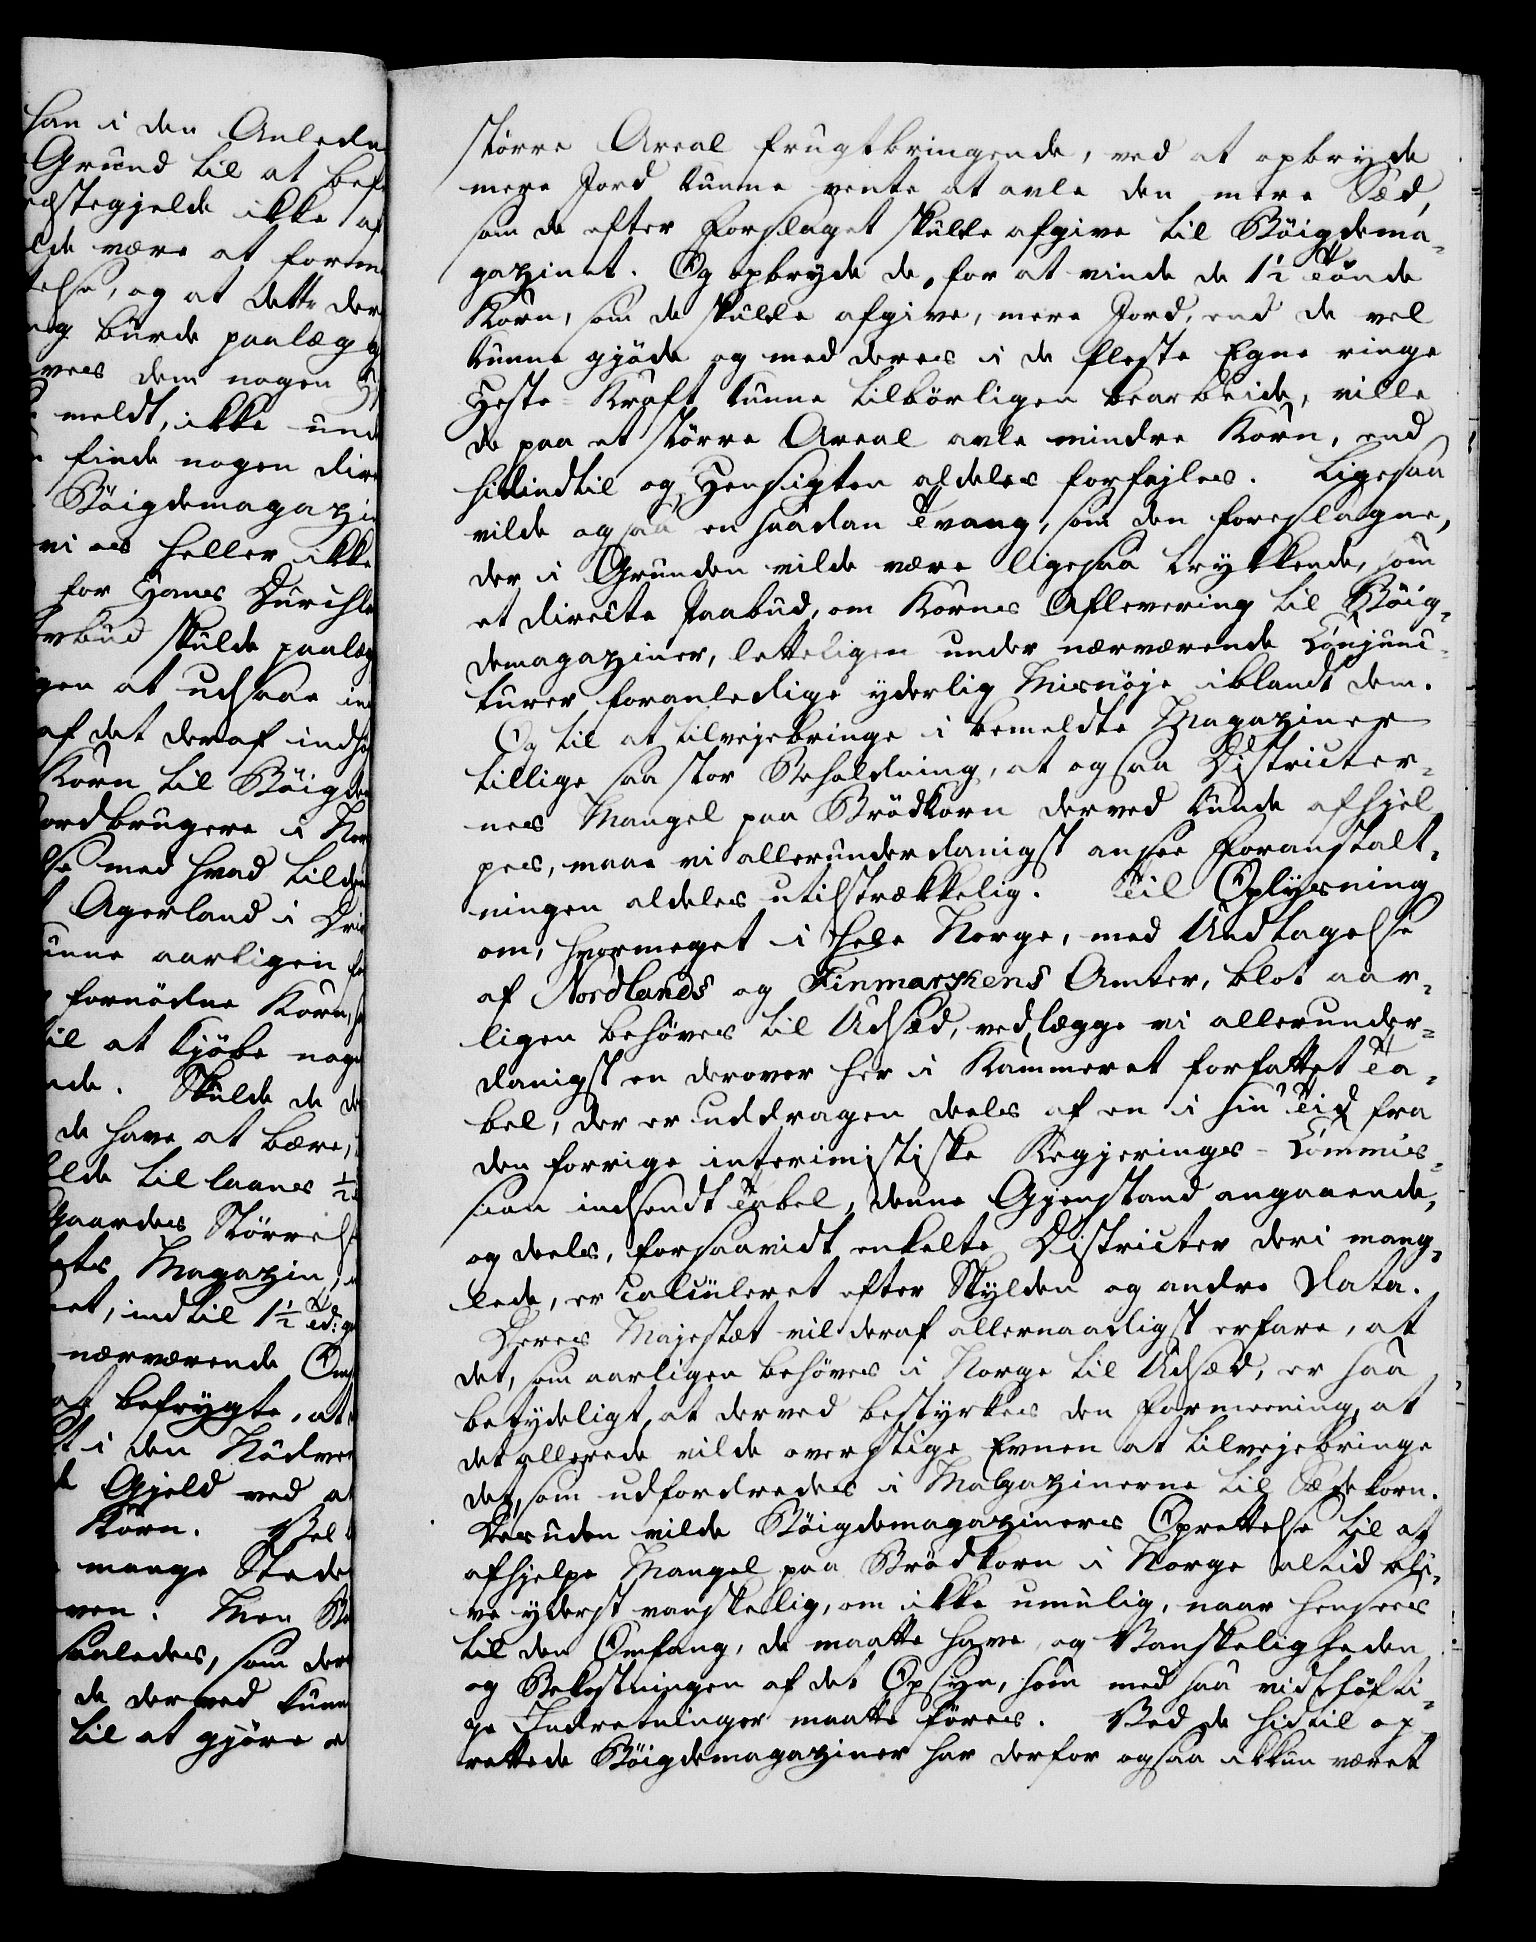 han i den Anledn
Grund til at bef
stegjelde ikke af
lde være at forme
telse, og at dette der
og burde paalægg
vees dem nogen
meldt, ikke und
finde nogen dire
Böigdemagazin
vi os heller ikke
for Hans Durchl
vbud skulde paalæg
gen at udsaae in
af det deraf indhö
Korn til Böigde
ordbrugere i Nor
se med hvad tilde
Agerland i Dri
unne aarligen
fornödne Korn,
til at kjöbe noge
nde. Skulde de
de have at bære,
lde til laans ½
Gaardens Störrelse
ets Magazin,
et, indtil 1½ Td:
nærværende Om
at befrygte, at
t i den Nödven
Gjeld ved at
Korn. Vel
mange Steder
ven. Men
saaledes, som der
de derved kunne
til at gjöre
större Areal frugtbringende, ved at opbryde
mere Jord kunne vente at avle den mere Sæd,
som de efter Forslaget skulde afgive til Böigdema-
gazinet. Og opbryde de, for at vinde de 1½ Tönde
Korn, som de skulde afgive, mere Jord, end de vel
kunne gjöde og med deres i de fleste Egne ringe
Heste-Kraft kunne tilbörligen bearbeide, ville
de paa et större Areal avle mindre Korn, end
hidindtil og Hensigten aldeles forfejles. Ligesaa
vilde ogsaa en saadan Tvang, som den foreslagne,
der i Grunden vilde være ligesaa trykkende, som
et directe Paabud, om Korns Aflevering til Böig-
demagaziner, letteligen under nærværende Conjunc-
turer foranledige yderlig Misnöje iblandt dem.
Og til at tilvejebringe i bemeldte Magaziner
tillige saa stor Beholdning, at ogsaa Districter-
nes Mangel paa Brödkorn derved kunde afhjel
pes, maae vi allerunderdanigst ansee Foranstalt-
ningen aldeles utilstrækkelig. Til Oplysning
om, hvormeget i hele Norge, med Undtagelse
af Nordlands og Finmarkens Amter, blot aar-
ligen behöves til Udsæd, vedlægge vi allerunder-
danigst en derover her i Kammeret forfattet Ta-
bel, der er uddragen deels af en i sin Tid fra
den forrige interimistiske Regjerings-Commis-
sion indsendt Tabel, denne Gjenstand angaaende,
og deels, forsaavidt enkelte Districter deri mang-
lede, er calculeret efter Skylden og andre Data.
Deres Majestæt vil deraf allernaadigst erfare, at
det, som aarligen behöves i Norge til Udsæd, er saa
betydeligt, at derved bestyrkes den Formeening, at
det allerede vilde overstige Evnen at tilvejebringe
det, som udfordredes i Magazinerne til Sædekorn.
Desuden vilde Böigdemagaziners Oprettelse til at
afhjelpe Mangel paa Brödkorn i Norge altid bli-
ve yderst vanskelig, om ikke umulig, naar henseees
til den Omfang, de maatte have, og Vanskeligheden
og Bekostningen af det Opsyn, som med saa vidtlöfti-
ge Indretninger maatte föres. Ved de hidtil op
rettede Böigdemagaziner har derfor ogsaa ikkun været